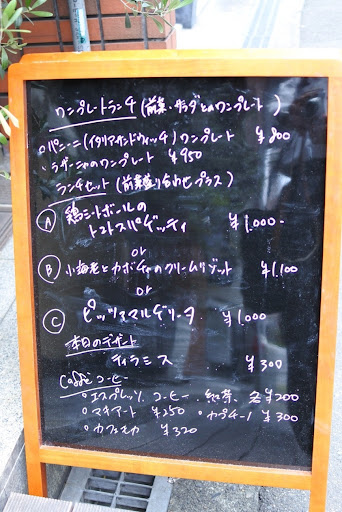 ワンプレートランチ (前菜・サラダとのワンプレート)
○パニーニ(イタリアサンドウィッチ)ワンプレート ¥800
・ラザーニャのワンプレート ¥950
ランチセット (前菜盛り合わせプラス)
Ⓐ 鶏ミートボールの
トマトスパゲッティ ¥1,000-
or
Ⓑ 小海老とカボチャのクリームリゾット ¥1,100
or
Ⓒ ピッツァマルゲリータ ¥1,000
本日のデザート
ティラミス ¥300
Caffé コーヒー
○エスプレッソ、コーヒー、紅茶、各¥200
○マキアート ¥250 ○カプチーノ ¥300
○カフェモカ ¥320